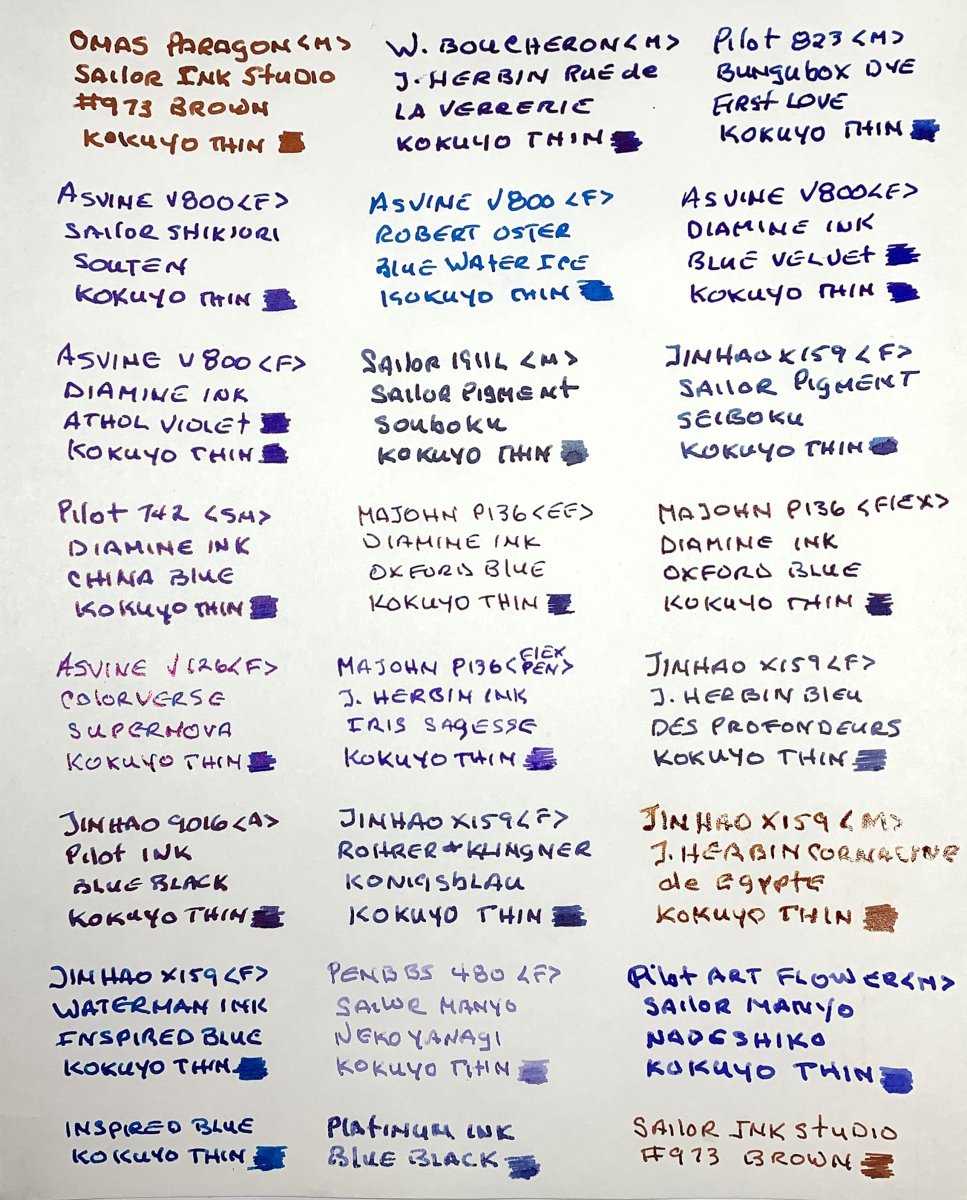 OMAS PARAGON <M>
SAILOR INK STUDIO
#973 BROWN
KOKUYO THIN
W. BOUCHERON <M>
J. HERBIN RUE de
LA VERRERIE
KOKUYO THIN
Pilot 823 <M>
BUNGUBOX DYE
FIRST LOVE
KOKUYO THIN
ASVINE V800 <F>
SAILOR SHIKIORI
SOUTEN
KOKUYO THIN
ASVINE V800 <F>
ROBERT OSTER
BLUE WATER ICE
KOKUYO THIN
ASVINE V800 <F>
DIAMINE INK
BLUE VELVET
KOKUYO THIN
ASVINE V800 <F>
DIAMINE INK
ATHOL VIOLET
KOKUYO THIN
SAILOR 1911L <M>
SAILOR PIGMENT
SOUBOKU
KOKUYO THIN
JINHAO X159 <F>
SAILOR PIGMENT
SEIBOKU
KOKUYO THIN
Pilot 742 <SM>
DIAMINE INK
CHINA BLUE
KOKUYO THIN
MAJOHN P136 <EF>
DIAMINE INK
OXFORD BLUE
KOKUYO THIN
MAJOHN P136 <FLEX>
DIAMINE INK
OXFORD BLUE
KOKUYO THIN
ASVINE V126 <F>
COLORVERSE
SUPERNOVA
KOKUYO THIN
MAJOHN P136 <FLEX PEN>
J. HERBIN INK
IRIS SAGESSE
KOKUYO THIN
JINHAO X159 <F>
J. HERBIN BLEU
DES PROFONDEURS
KOKUYO THIN
JINHAO 9016 <A>
Pilot INK
BLUE BLACK
KOKUYO THIN
JINHAO X159 <F>
ROHRER & KLINGNER
KONIGSBLAU
KOKUYO THIN
JINHAO X159 <M>
J. HERBIN CORNALINE
de EGYPTE
KOKUYO THIN
JINHAO X159 <F>
WATERMAN INK
INSPIRED BLUE
KOKUYO THIN
PENBBS 480 <F>
SAILOR MANYO
NEKOYANAGI
KOKUYO THIN
Pilot ART FLOWER <M>
SAILOR MANYO
NADESHIKO
KOKUYO THIN
INSPIRED BLUE
KOKUYO THIN
PLATINUM INK
BLUE BLACK
SAILOR INK STUDIO
#973 BROWN